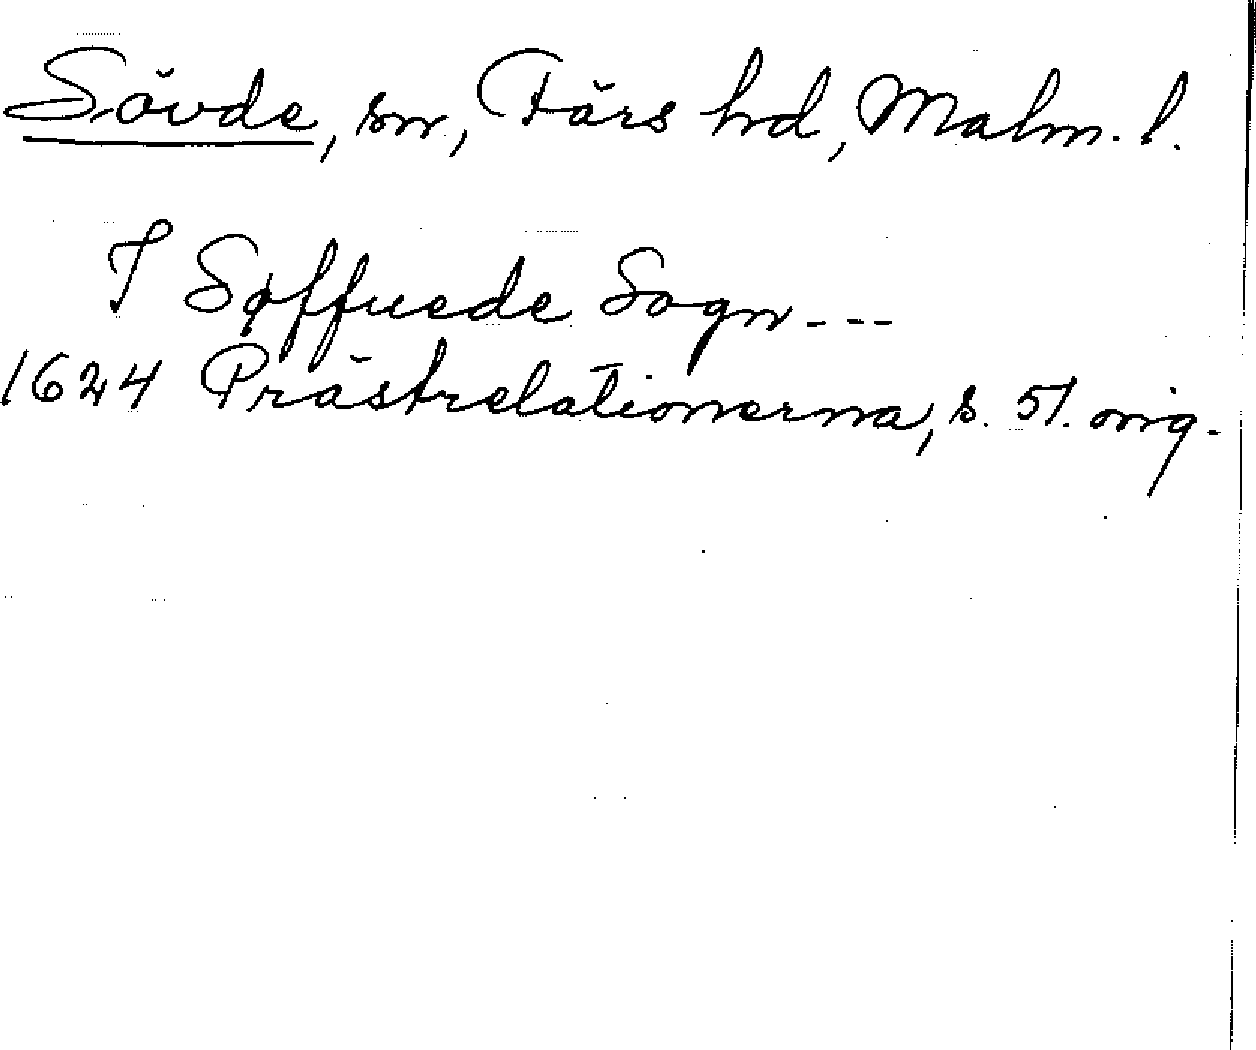 Sövde, sn, Färs hd, Malm. l.
I Søffuede Sogn ---
1624 Prästrelationerna, s. 51. orig.